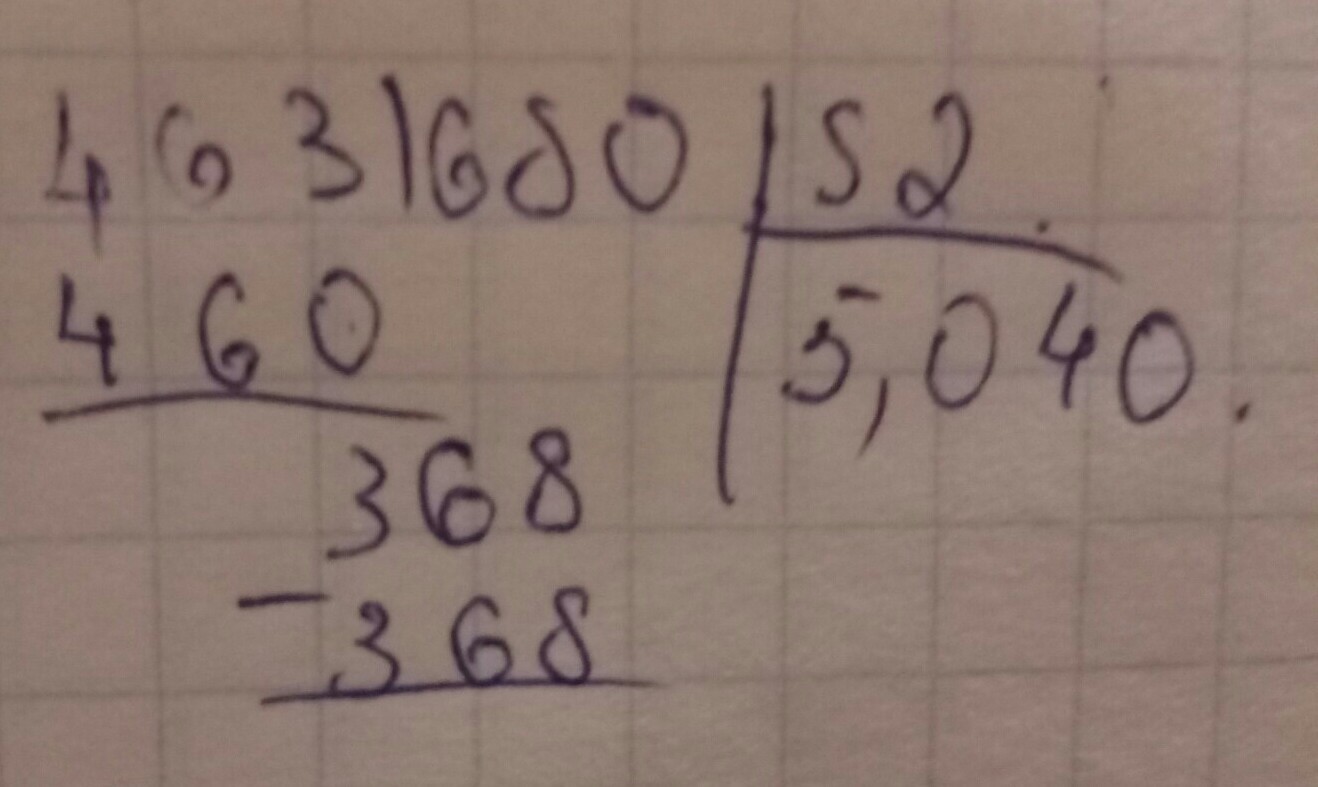 463|680 | 52
460 5,040.
368
-368